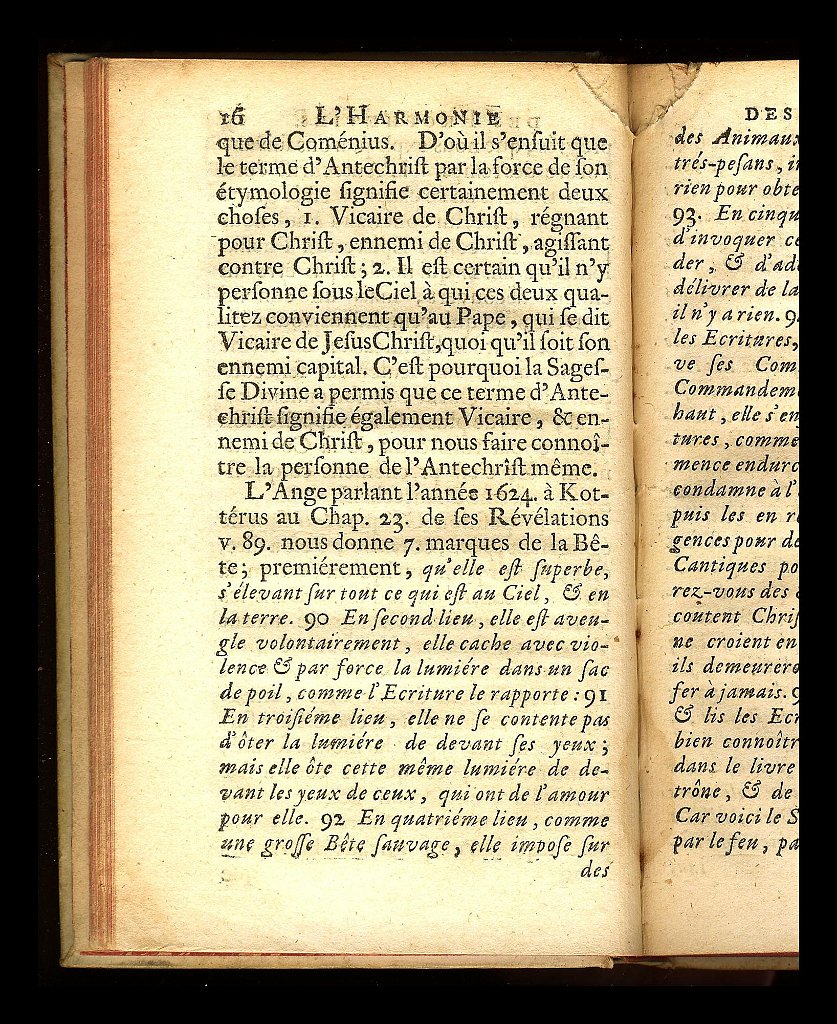 16 L'HARMONIE
que de Coménius. D'où il s'enſuit que
le terme d'Antechriſt par la force de ſon
étymologie ſignifie certainement deux
choſes, 1. Vicaire de Chriſt, régnant
pour Chriſt, ennemi de Chriſt, agiſſant
contre Chriſt; 2. Il eſt certain qu'il n'y
perſonne ſous leCiel à qui ces deux qua-
litez conviennent qu'au Pape, qui ſe dit
Vicaire de JeſusChriſt, quoi qu'il ſoit ſon
ennemi capital. C'eſt pourquoi la Sageſ-
ſe Divine a permis que ce terme d'Ante-
chriſt ſignifie également Vicaire, & en-
nemi de Chriſt, pour nous faire connoî-
tre la perſonne de l'Antechriſt même.
L'Ange parlant l'année 1624. à Kot-
térus au Chap. 23. de ſes Révélations
v. 89. nous donne 7. marques de la Bê-
te; premiérement, qu'elle eſt ſuperbe,
s'élevant ſur tout ce qui eſt au Ciel, & en
la terre. 90 En ſecond lieu, elle eſt aveu-
gle volontairement, elle cache avec vio-
lence & par force la lumiére dans un ſac
de poil, comme l'Ecriture le rapporte: 91
En troiſiéme lieu, elle ne ſe contente pas
d'ôter la lumiére de devant ſes yeux;
mais elle ôte cette même lumiére de de-
vant les yeux de ceux, qui ont de l'amour
pour elle. 92 En quatriéme lieu, comme
une groſſe Bête ſauvage, elle impoſe ſur
des
DES
des Animaux
trés-peſans, i
rien pour obte
93. En cinqu
d'invoquer ce
der, & d'ad
délivrer de la
il n'y a rien. 9
les Ecritures,
ve ſes Com
Commandem
haut, elle s'en
tures, comme
mence endurc
condamne à l'
puis les en r
gences pour de
Cantiques po
rez-vous des
coutent Chriſ
ne croient en
ils demeurero
fer à jamais. 9
& lis les Ecr
bien connoîtr
dans le livre
trône, & de
Car voici le S
par le feu, pa